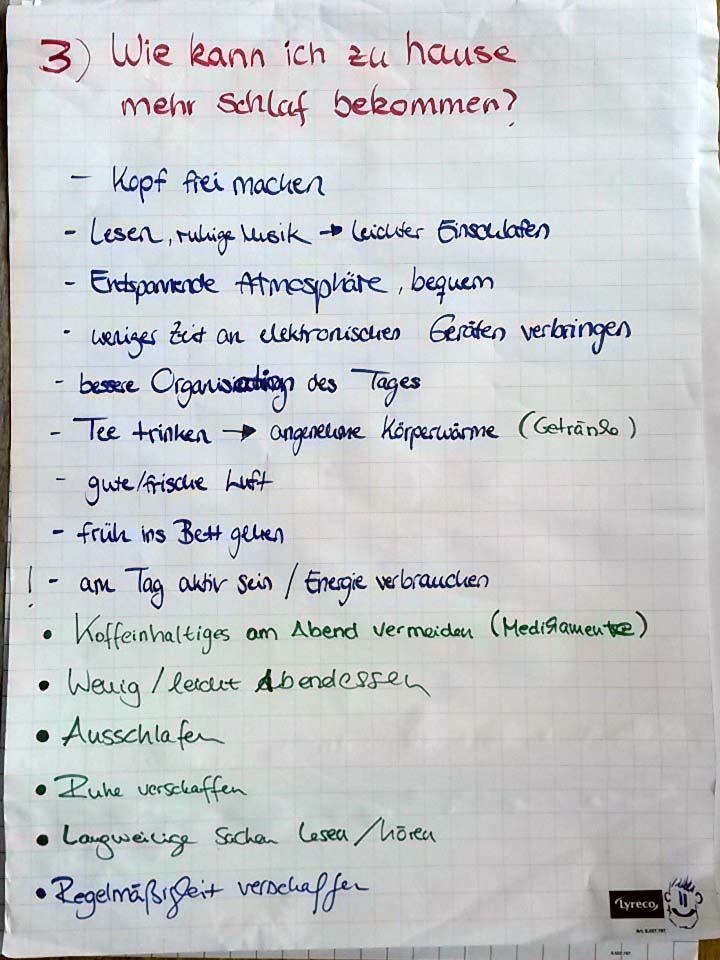 3) Wie kann ich zu hause
mehr Schlaf bekommen?
- Kopf frei machen
- Lesen, ruhige Musik → leichter Einschlafen
- Entspannende Atmosphäre, bequem
- weniger Zeit an elektronischen Geräten verbringen
- bessere Organisation des Tages
- Tee trinken → angenehme Körperwärme (Getränke)
- gute/frische Luft
- früh ins Bett gehen
! - am Tag aktiv sein / Energie verbrauchen
• Koffeinhaltiges am Abend vermeiden (Medikamente)
• Wenig / leicht Abendessen
• Ausschlafen
• Ruhe verschaffen
• Langweilige Sachen lesen / hören
• Regelmäßigkeit verschaffen
Lyreco
Art. 6.007.787
6.007.787